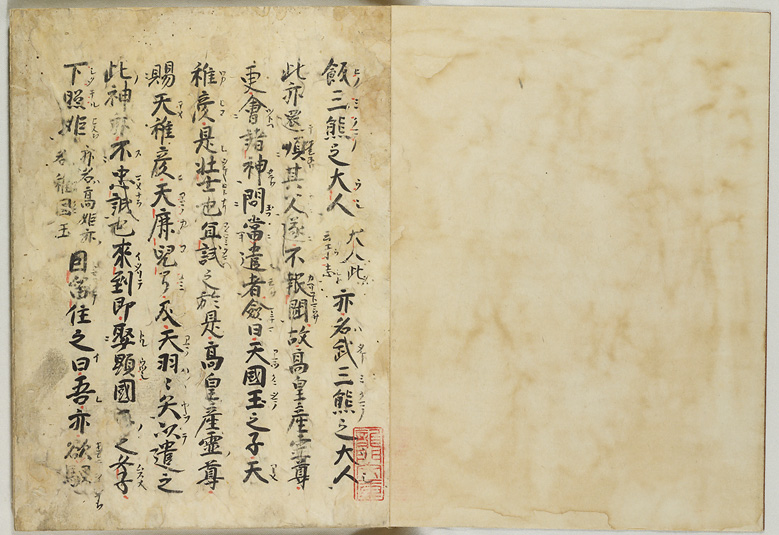 飯三熊之大人大人此云于志亦名武三熊之大人
此亦還順其父遂不報聞故高皇産霊尊
更會諸神問當遣者僉曰天國玉之子天
稚彦是壮士也宜試之於是高皇産霊尊
賜天稚彦天鹿兒弓及天羽〻矢以遣之
此神亦不忠誠也來到即娶顕國玉之女子
下照姫亦名高姫亦名稚國玉因留住之曰吾亦欲馭